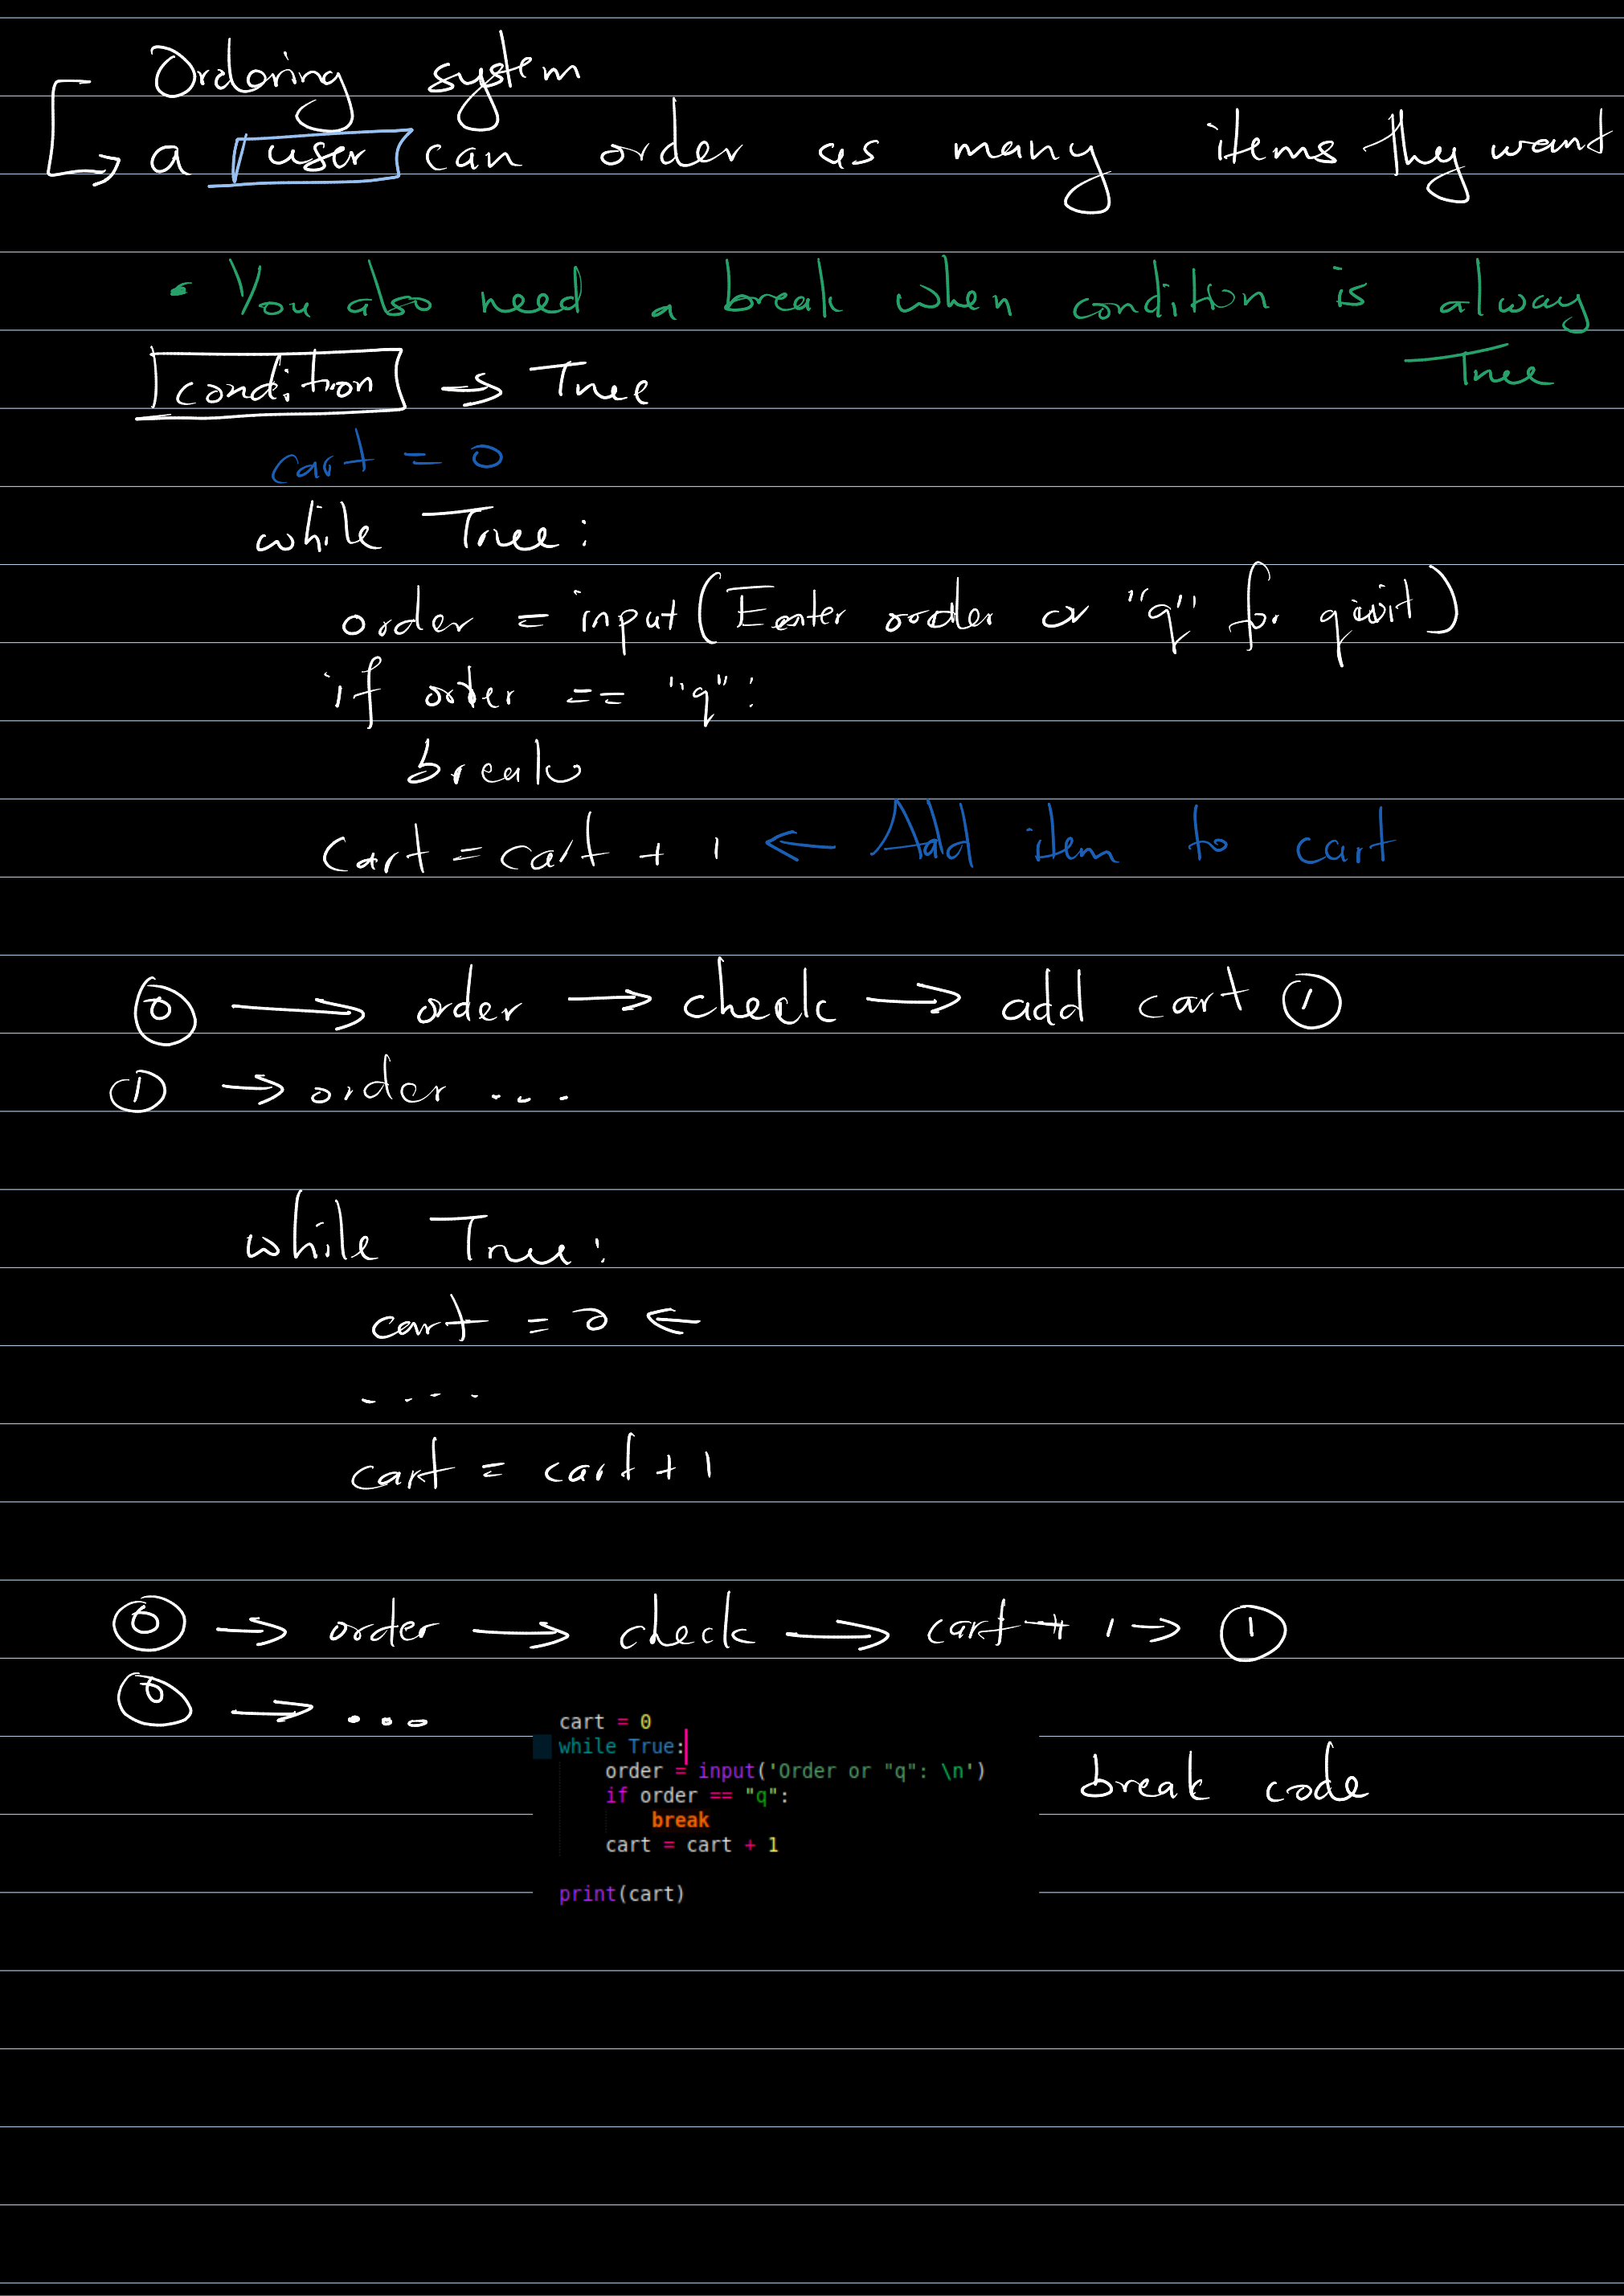 Ordering system
↳ a user can order as many items they want
• You also need a break when condition is alway
True
condition → True
cart = 0
while True:
order = input(Eenter order or "q" for quit)
if order == "q":
break
cart = cart + 1 ← Add item to cart
⓪ → order → check → add cart ①
① → order ...
while True:
cart = 0 ←
....
cart = cart + 1
⓪ → order → check → cart + 1 → ①
⓪ → ...
cart = 0
while True:
order = input('Order or "q": \n')
if order == "q":
break
cart = cart + 1
print(cart)
break code